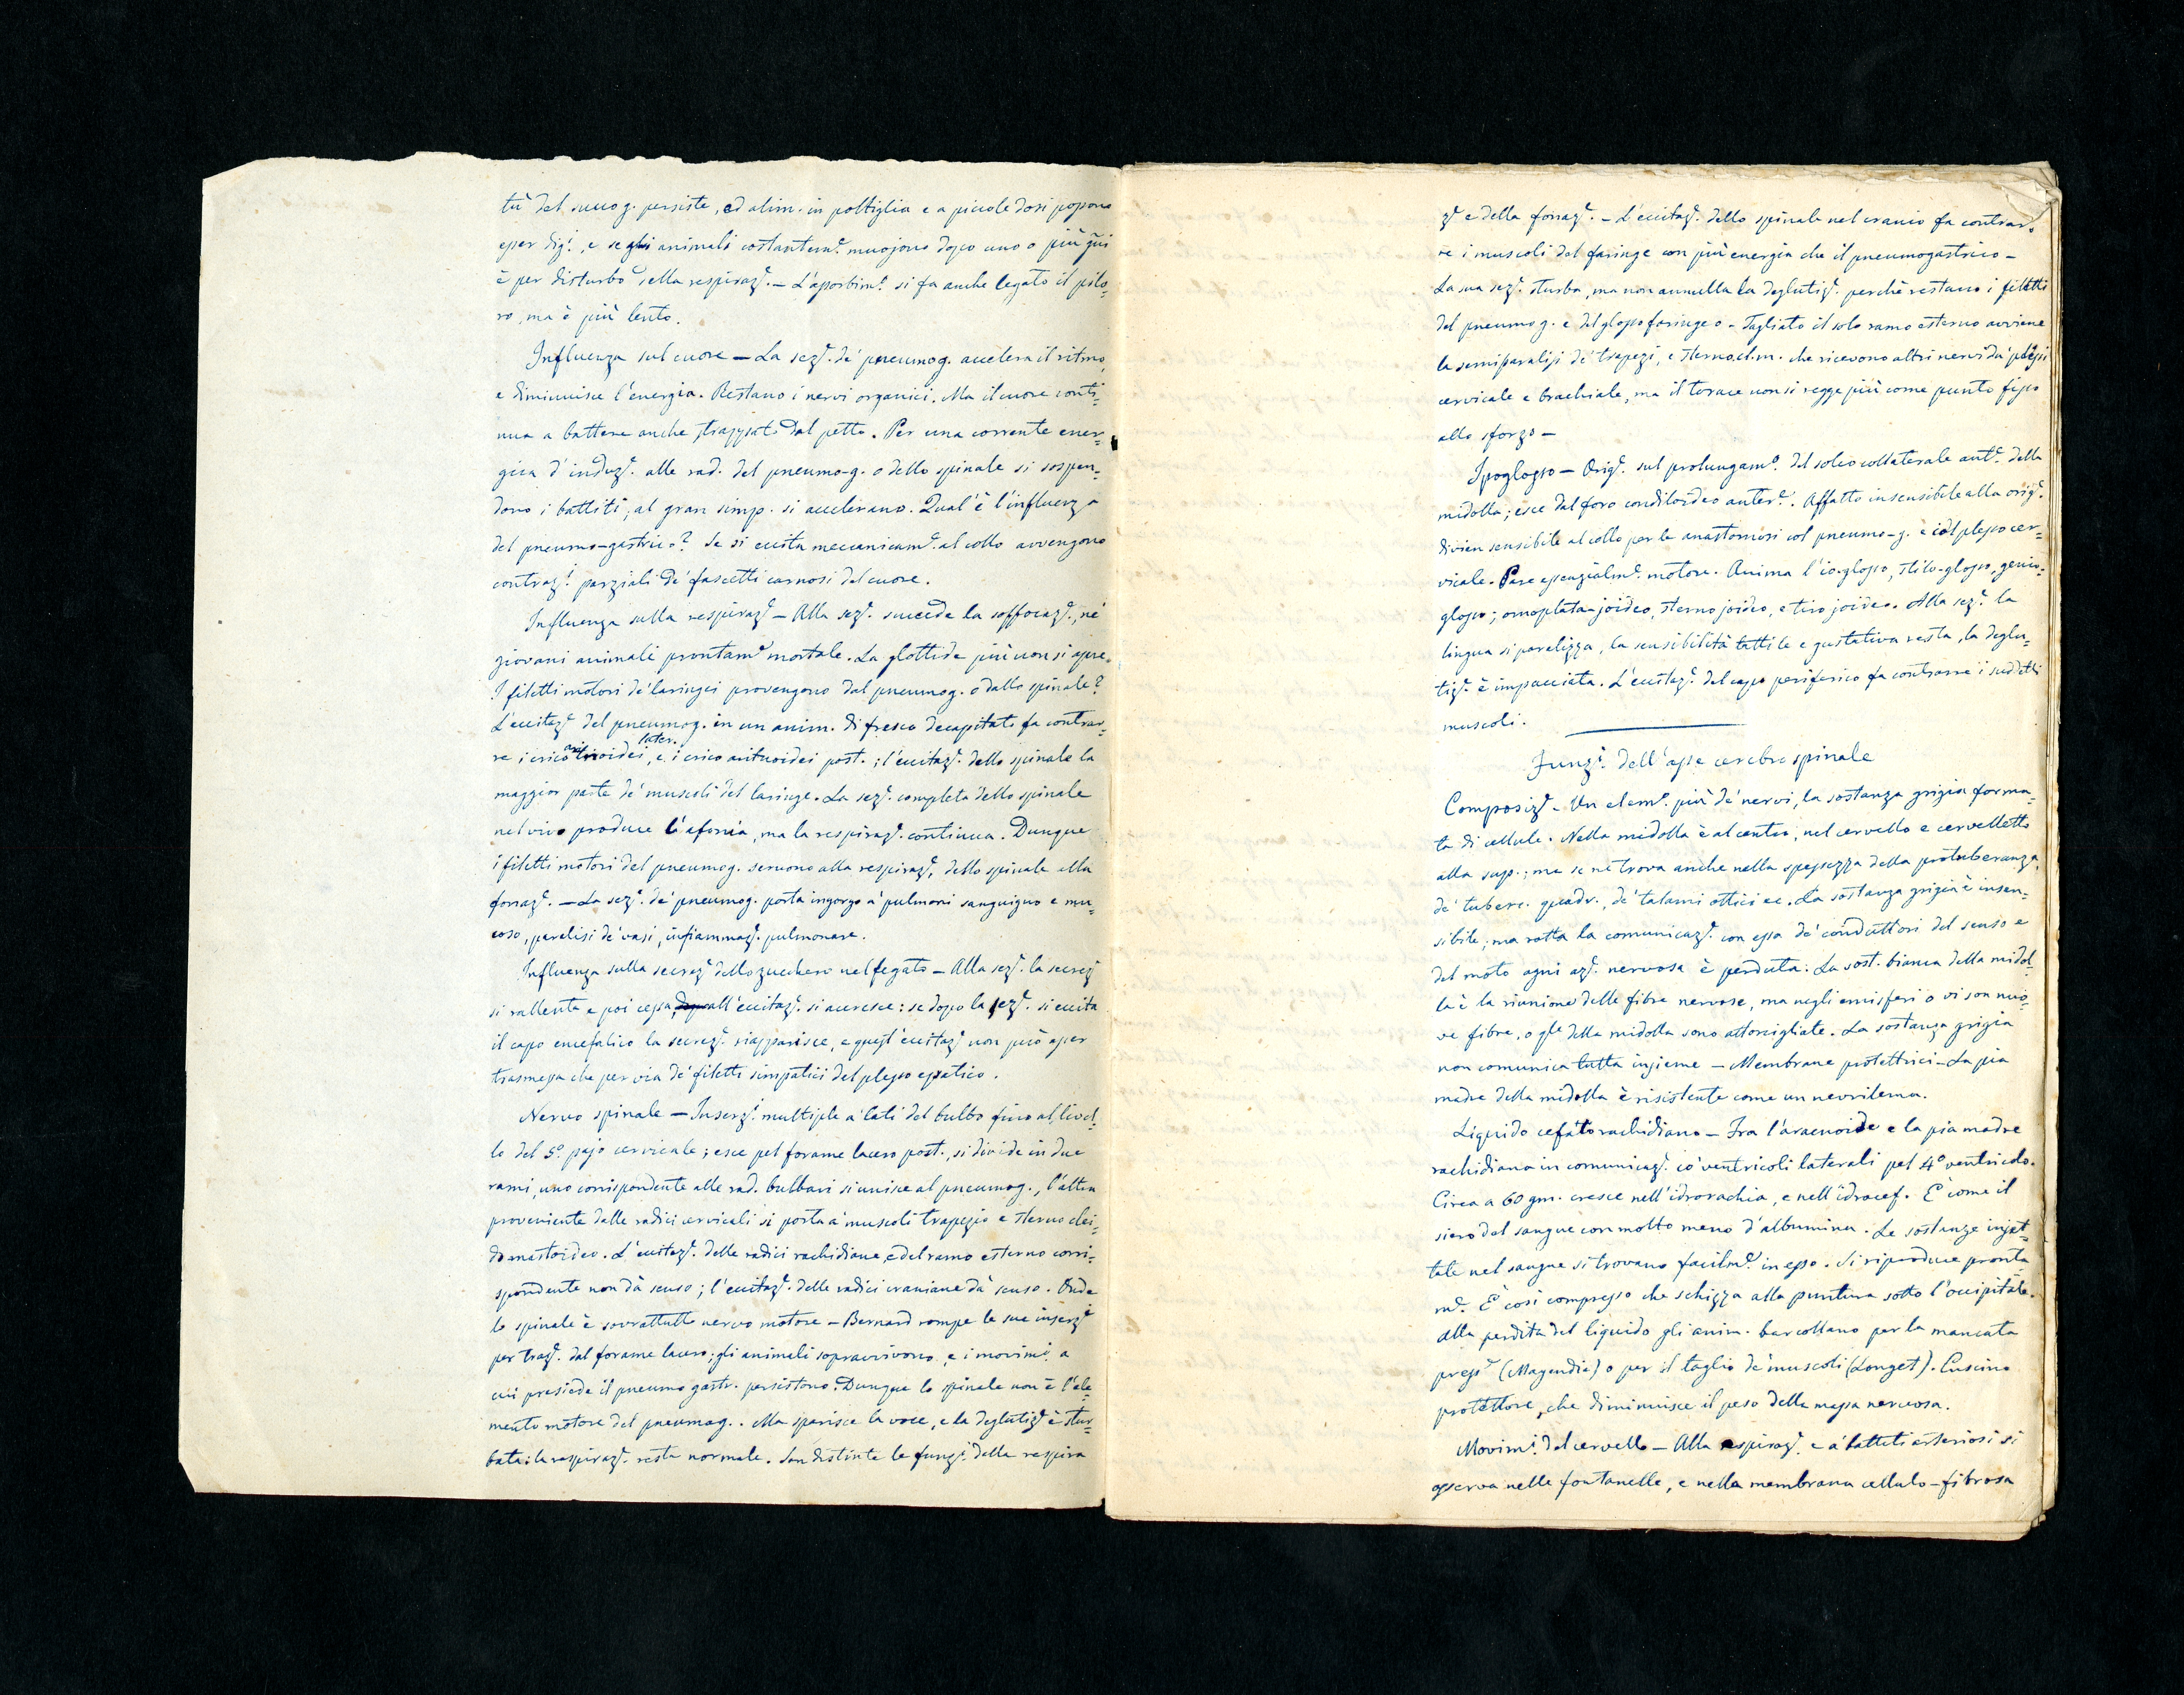 tù del succo g. persiste, ed alim. in poltiglia e a piccole dosi possono
esser dig.i, e se gli animali costantem.e muojono dopo uno o più gni
è per disturbo della respiraz.e. — L'assorbim.o si fa anche legato il pilo=
ro, ma è più lento.
Influenza sul cuore — La sez.e de' pneumog. accelera il ritmo,
e diminuisce l'energia. Restano i nervi organici. Ma il cuore conti=
nua a battere anche strappato dal petto. Per una corrente ener=
gica d'induz.e alle rad. del pneumo-g. o dello spinale si sospen=
dono i battiti; al gran simp. si accelerano. Qual'è l'influenza
del pneumo-gastrico? Se si eccita meccanicam.e al collo avvengono
contraz.i parziali de' fascetti carnosi del cuore.
Influenza sulla respiraz.e — Alla sez.e succede la soffocaz.e, ne'
giovani animali prontam.e mortale. La glottide più non si apre.
I filetti motori de' laringei provengono dal pneumog. o dallo spinale?
L'eccitaz.e del pneumog. in un anim. di fresco decapitato fa contrar=
re i crico aritnoidei later., e i crico aritnoidei post.; l'eccitaz.e dello spinale la
maggior parte de' muscoli del laringe. La sez.e completa dello spinale
nel vivo produce l'afonia, ma la respiraz.e continua. Dunque
i filetti motori del pneumog. servono alla respiraz.e, dello spinale alla
fonaz.e. — La sez.e de' pneumog. porta ingorgo a' pulmoni sanguigno e mu=
coso, paralisi de' vasi, infiammaz.e pulmonare.
Influenza sulla secrez.e dello zucchero nel fegato — Alla sez.e la secrez.e
si rallenta e poi cessa, dopo all'eccitaz.e si accresce: se dopo la sez.e si eccita
il capo encefalico la secrez.e riapparisce, e quest'eccitaz.e non può esser
trasmessa che per via de' filetti simpatici del plesso epatico.
Nervo spinale — Inserz.i multiple a' lati del bulbo fino al livel=
lo del 5.o pajo cervicale; esce pel forame lacero post., si divide in due
rami, uno corrispondente alle rad. bulbari si unisce al pneumog., l'altro
proveniente dalle radici cervicali si porta a' muscoli trapezio e sterno clei=
do mastoideo. L'eccitaz.e delle radici rachidiane, e del ramo esterno corri=
spondente non dà senso; l'eccitaz.e delle radici craniane dà senso. Onde
lo spinale è sovrattutto nervo motore — Bernard rompe le sue inserz.i
per traz.e dal forame lacero; gli animali sopravvivono, e i movim.i a
cui presiede il pneumo gastr. persistono. Dunque lo spinale non è l'ele=
mento motore del pneumog. Ma sparisce la voce, e la deglutiz.e è stur=
bata: la respiraz.e resta normale. Son distinte le funz.i della respira
z.e e della fonaz.e. — L'eccitaz.e dello spinale nel cranio fa contrar=
re i muscoli del faringe con più energia che il pneumogastrico —
La sua sez.e sturba, ma non annulla la deglutiz.e perchè restano i filetti
del pneumog. e del glossofaringeo — Tagliato il solo ramo esterno avviene
la semiparalisi de' trapezi, e sterno.cl.m. che ricevono altri nervi da' plessi
cervicale e brachiale, ma il torace non si regge più come punto fisso
allo sforzo —
Ipoglosso — Orig.e sul prolungam.o del solco collaterale ant.e della
midolla; esce dal foro condiloideo anter.e. Affatto insensibile alla orig.e
divien sensibile al collo per le anastomosi col pneumo-g. e col plesso cer=
vicale. Pare essenzialm.e motore. Anima l'io-glosso, stilo-glosso, genio=
glosso; omoplata-joideo, sterno joideo, e tiro joideo. Alla sez.e la
lingua si paralizza, la sensibilità tattile e gustativa resta, la deglu=
tiz.e è impacciata. L'eccitaz.e del capo periferico fa contrarre i suddetti
muscoli.
Funz.i dell'asse cerebro spinale
Composiz.e — Un elem.o più de' nervi, la sostanza grigia forma=
ta di cellule. Nella midolla è al centro, nel cervello e cervelletto
alla sup.; ma se ne trova anche nella spessezza della protuberanza,
de' tuberc. quadr., de' talami ottici ec. La sostanza grigia è insen=
sibile; ma rotta la comunicaz.e con essa de' conduttori del senso e
del moto ogni az.e nervosa è perduta. La sost. bianca della midol=
la è la riunione delle fibre nervose, ma negli emisferi o vi son nuo=
ve fibre, o q.le della midolla sono attorcigliate. La sostanza grigia
non comunica tutta insieme — Membrane protettrici — La pia
madre della midolla è risistente come un nevrilema.
Liquido cefalorachidiano — Fra l'aracnoide e la pia madre
rachidiana in comunicaz.e co' ventricoli laterali pel 4.o ventricolo.
Circa a 60 gm. cresce nell'idrorachia, e nell'idrocef. E' come il
siero del sangue con molto meno d'albumina. Le sostanze injet=
tate nel sangue si trovano facilm.e in esso. Si riproduce pronta
m.e. E' così compresso che schizza alla puntura sotto l'occipitale.
Alla perdita del liquido gli anim. barcollano per la mancata
press.e (Magendie) o per il taglio de' muscoli (Longet). Cuscino
protettore, che diminuisce il peso della massa nervosa.
Movim.i del cervello — Alla respiraz.e e a' battiti arteriosi si
osserva nelle fontanelle, e nella membrana cellulo-fibrosa